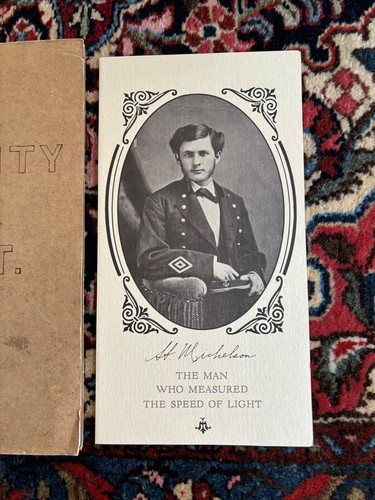 ITY
T.
A. Michelson
THE MAN
WHO MEASURED
THE SPEED OF LIGHT